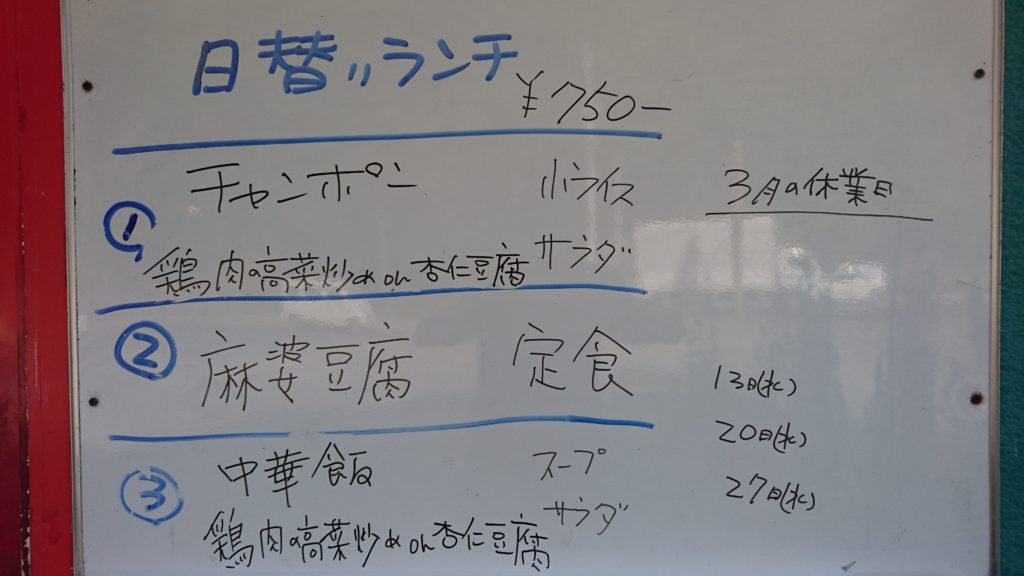 日替りランチ
¥750-
① チャンポン 小ライス
鶏肉の高菜炒め on 杏仁豆腐 サラダ
② 麻婆豆腐 定食
③ 中華飯 スープ
鶏肉の高菜炒め on 杏仁豆腐 サラダ
3月の休業日
13日(水)
20日(水)
27日(水)